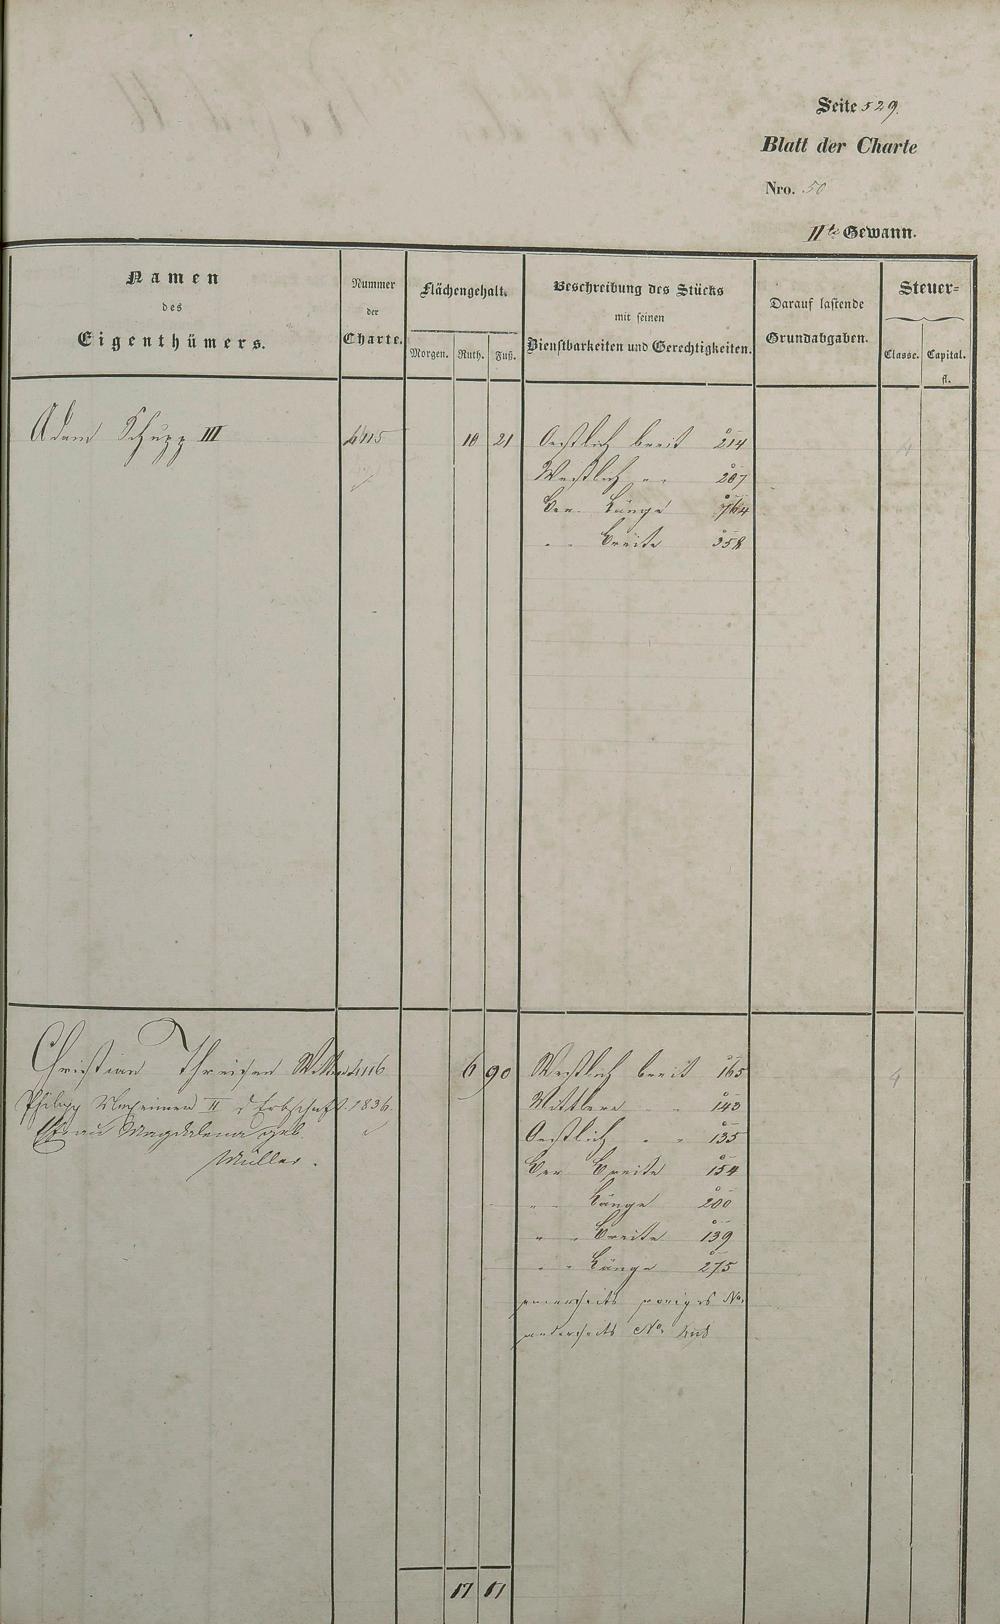 Seite 529.
Blatt der Charte
Nro. 50
IIte Gewann.
Namen
des
Eigenthümers.
Nummer
der
Charte.
Flächengehalt.
Morgen. Ruth. Fuß.
Beschreibung des Stücks
mit seinen
Dienstbarkeiten und Gerechtigkeiten.
Darauf lastende
Grundabgaben.
Steuer=
Classe. Capital.
fl.
Adam Schupp III 4415 10 21 Oestlich breit 214 4
Westlich " " 207
Der Länge 764
" " Breite 358
Christian 6 90 Westlich breit 165 4
Philipp II d Erbschaft 1836. Mittlere " " 143
Frau Magdalena geb. Oestlich " " 135
Müller. Der Breite 154
" " Länge 200
" " Breite 139
" " Länge 275
einerseits voriges No.
anderseits No.
17 11